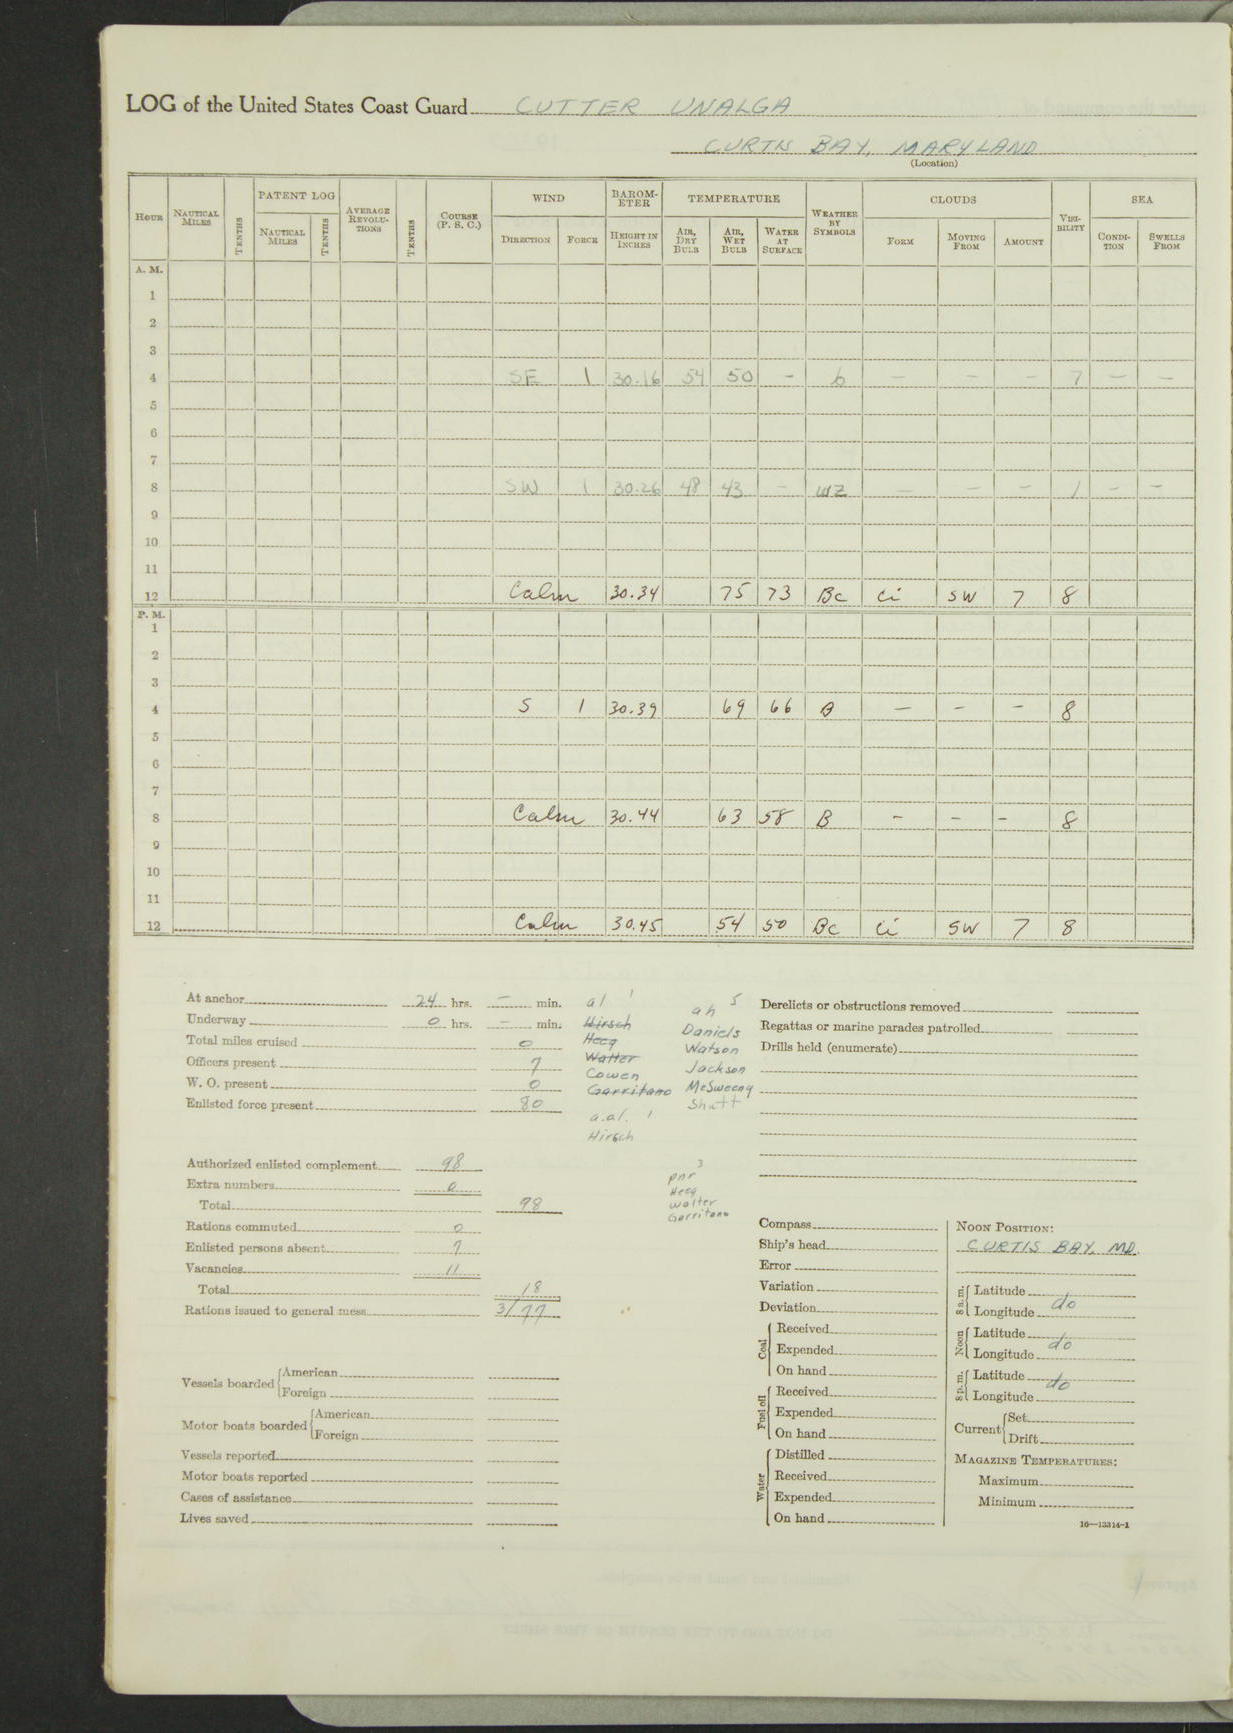 LOG of the United States Coast Guard CUTTER UNALGA
CURTIS BAY, MARYLAND
(Location)
HOUR NAUTICAL MILES TENTHS PATENT LOG NAUTICAL MILES TENTHS AVERAGE REVOLUTIONS TENTHS COURSE (P. S. C.) WIND DIRECTION FORCE BAROMETER HEIGHT IN INCHES TEMPERATURE AIR, DRY BULB AIR, WET BULB WATER AT SURFACE WEATHER BY SYMBOLS CLOUDS FORM MOVING FROM AMOUNT VISIBILITY SEA CONDITION SWELLS FROM
A. M.
1
2
3
4 SE 1 30.16 54 50 - b - - - 7 - -
5
6
7
8 SW 1 30.26 48 43 - wz - - - 1 - -
9
10
11
12 Calm 30.34 75 73 Bc Ci SW 7 8
P. M.
1
2
3
4 S 1 30.39 69 66 B - - - 8
5
6
7
8 Calm 30.44 63 58 B - - - 8
9
10
11
12 Calm 30.45 54 50 Bc Ci SW 7 8
At anchor 24 hrs. - min.
Underway 0 hrs. - min.
Total miles cruised 0
Officers present 7
W. O. present 0
Enlisted force present 80
al 1
Hirsch
Hecq
Walter
Cowen
Garritano
a.al. 1
Hirsch
ah 5
Daniels
Watson
Jackson
McSweeny
Shutt
pnr 3
Hecq
Walter
Garritano
Derelicts or obstructions removed
Regattas or marine parades patrolled
Drills held (enumerate)
Authorized enlisted complement 98
Extra numbers 0
Total 98
Rations commuted 0
Enlisted persons absent 7
Vacancies 11
Total 18
Rations issued to general mess 3/77
Vessels boarded American
Foreign
Motor boats boarded American
Foreign
Vessels reported
Motor boats reported
Cases of assistance
Lives saved
Compass
Ship's head
Error
Variation
Deviation
Coal Received
Expended
On hand
Fuel oil Received
Expended
On hand
Water Distilled
Received
Expended
On hand
NOON POSITION:
CURTIS BAY, MD.
8 a. m. Latitude
Longitude do
Noon Latitude
Longitude do
8 p. m. Latitude
Longitude do
Current Set
Drift
MAGAZINE TEMPERATURES:
Maximum
Minimum
16—13314-1